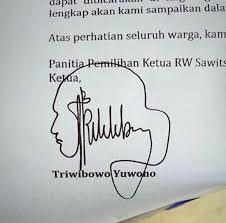 dapat dibicarakan di
lengkap akan kami sampaikan dala
Atas perhatian seluruh warga, kam
Panitia Pemilihan Ketua RW Sawits
Ketua,
Triwibowo Yuwono